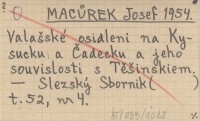 MACŮREK Josef 1954.
Valašské osídlení na Ky-
sucku a Čadecku a jeho
souvislosti s Těšínskem.
— Slezský Sborník ( )
t. 52, nr 4.